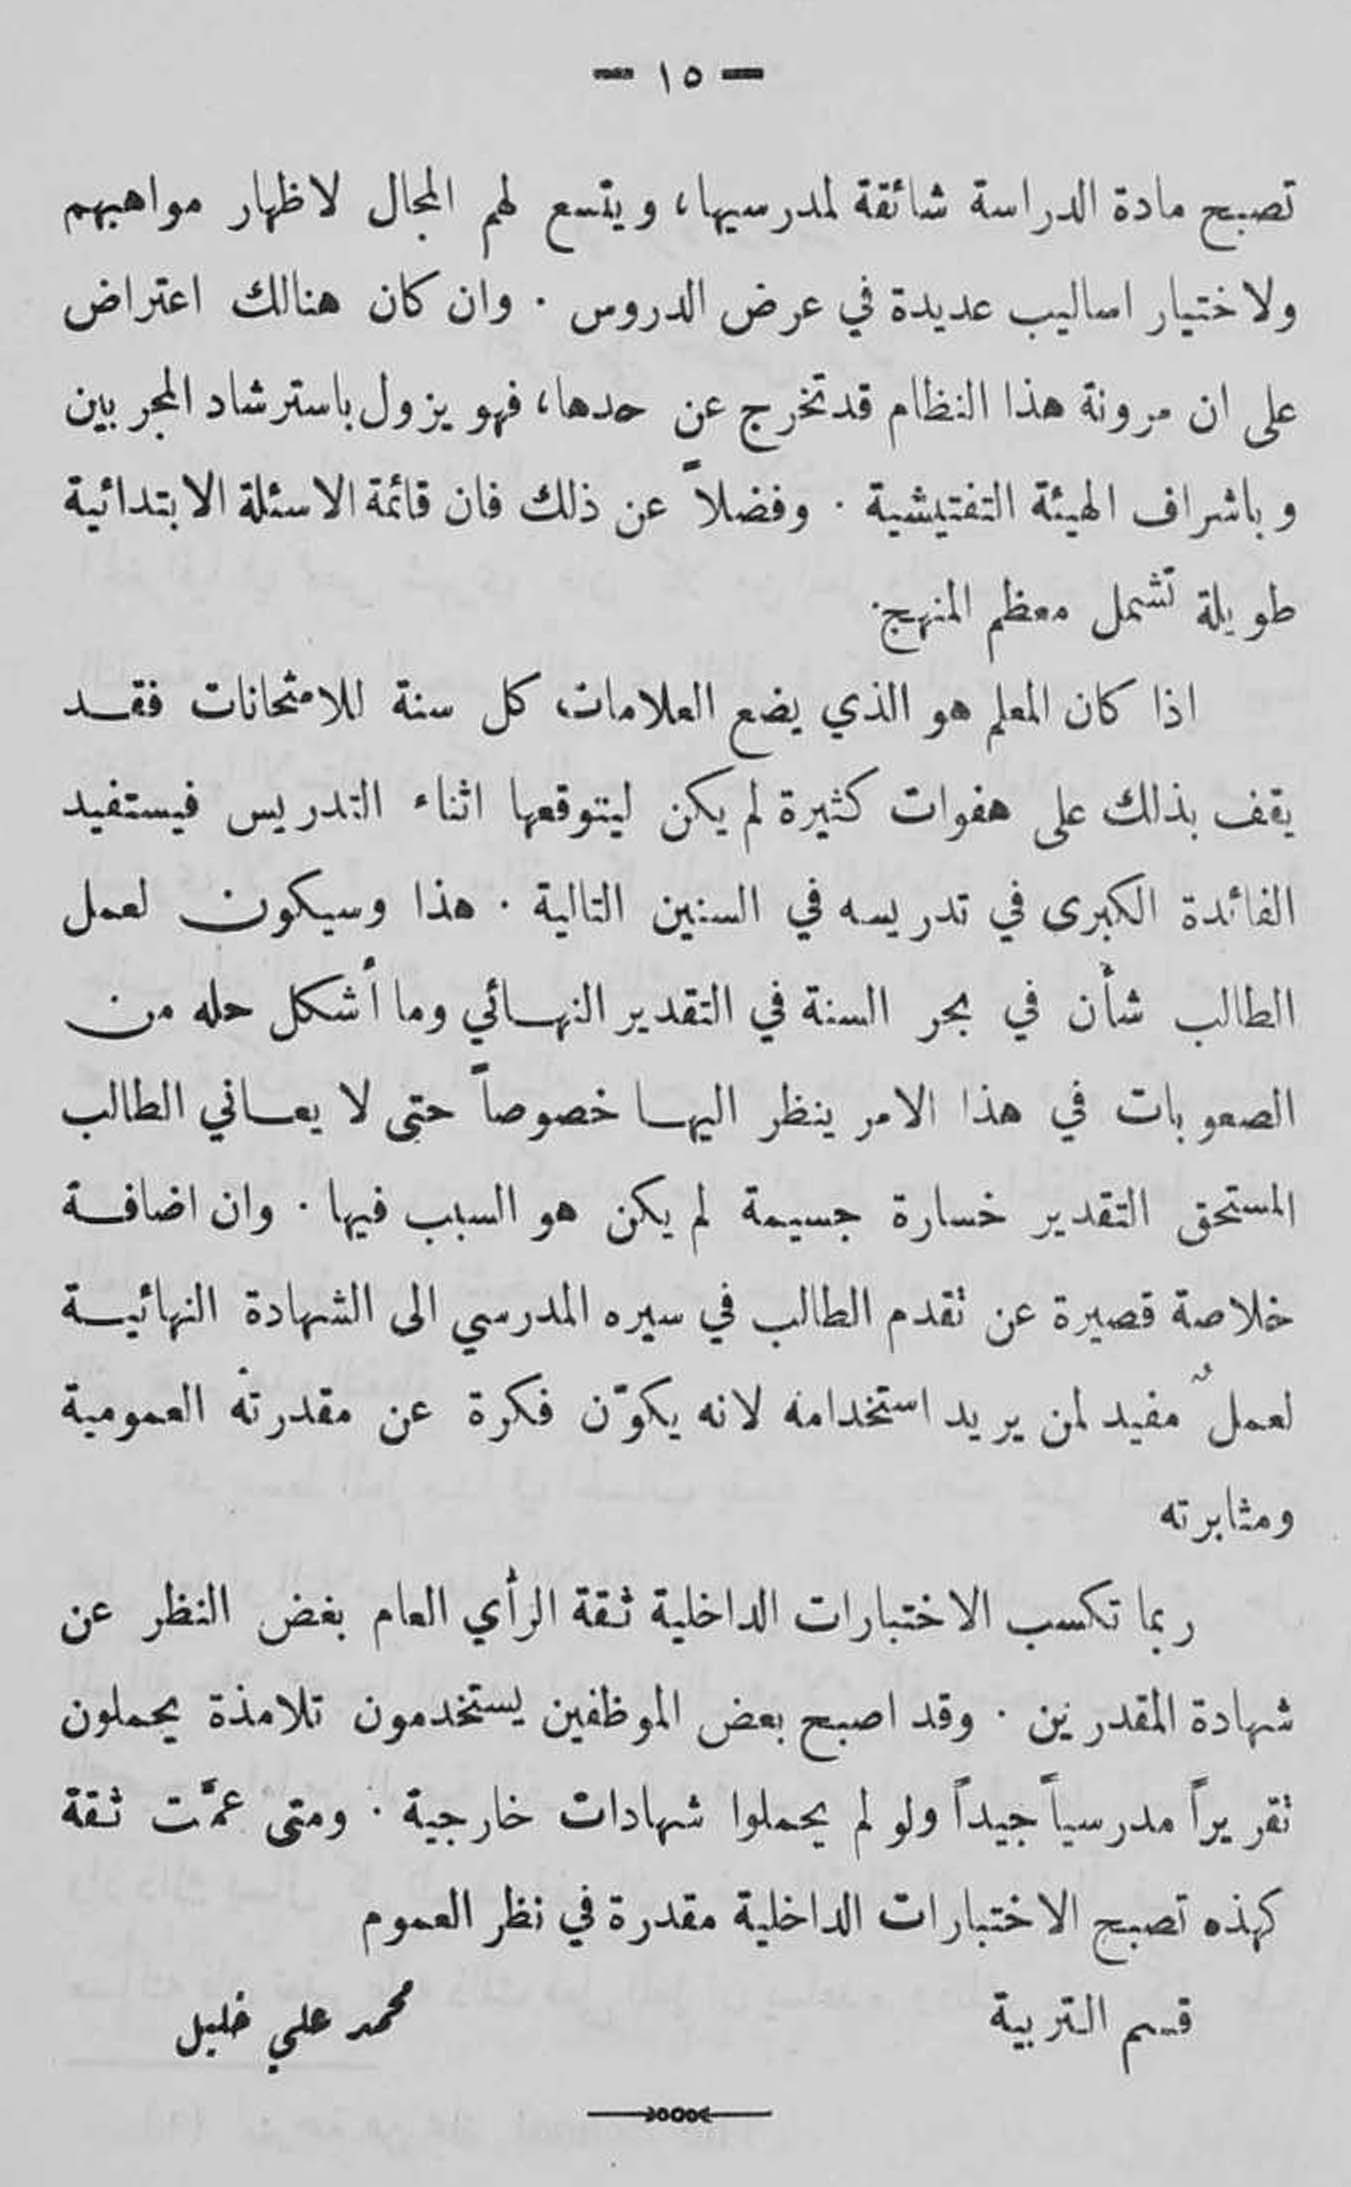 — ١٥ —
تصبح مادة الدراسة شائقة لمدرسيها، ويتسع لهم المجال لاظهار مواهبهم
ولاختيار اساليب عديدة في عرض الدروس . وان كان هنالك اعتراض
على ان مرونة هذا النظام قد تخرج عن حدها، فهو يزول باسترشاد المجربين
وباشراف الهيئة التفتيشية . وفضلاً عن ذلك فان قائمة الاسئلة الابتدائية
طويلة تشمل معظم المنهج.
اذا كان المعلم هو الذي يضع العلامات، كل سنة للامتحانات فقد
يقف بذلك على هفوات كثيرة لم يكن ليتوقعها اثناء التدريس فيستفيد
الفائدة الكبرى في تدريسه في السنين التالية . هذا وسيكون لعمل
الطالب شأن في بحر السنة في التقدير النهائي وما أشكل حله من
الصعوبات في هذا الامر ينظر اليها خصوصاً حتى لا يعاني الطالب
المستحق التقدير خسارة جسيمة لم يكن هو السبب فيها . وان اضافة
خلاصة قصيرة عن تقدم الطالب في سيره المدرسي الى الشهادة النهائية
لعملٌ مفيد لمن يريد استخدامه لانه يكوّن فكرة عن مقدرته العمومية
ومثابرته
ربما تكسب الاختبارات الداخلية ثقة الرأي العام بغض النظر عن
شهادة المقدرين . وقد اصبح بعض الموظفين يستخدمون تلامذة يحملون
تقريراً مدرسياً جيداً ولو لم يحملوا شهادات خارجية . ومتى عمَّت ثقة
كهذه تصبح الاختبارات الداخلية مقدرة في نظر العموم
قسم التربية محمد علي خليل